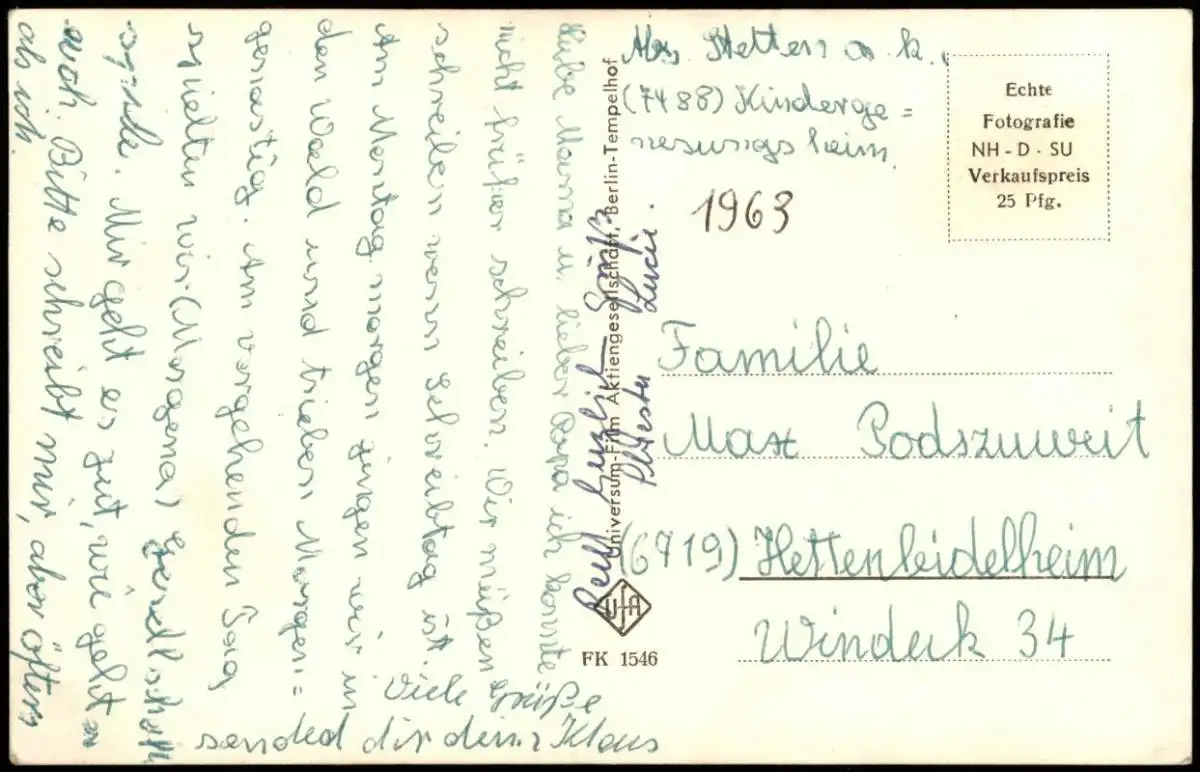 Abs. Stetten a. k. M.
(7488) Kinderge=
nesungsheim
1963
Echte
Fotografie
NH - D - SU
Verkaufspreis
25 Pfg.
Familie
Max Podszuweit
(6719) Hettenleidelheim
Windeck 34
Liebe Mama u. lieber Papa ich konnte
nicht früher schreiben. Wir müßen
schreiben wenn Schreibtag ist.
Am Montag morgen gingen wir in
den Wald und trieben Morgen=
gymastig. Am vorgehenden Tag
spielten wir (Morgens) Gesellschaft
spiele. Mir geht es gut, wie geht es
euch. Bitte schreibt mir, aber öfters
als ich.
Viele Grüße
sended dir deine Klaus
Gruß
Schwester Lucie.
Universum-Film Aktiengesellschaft, Berlin-Tempelhof
UFA
FK 1546